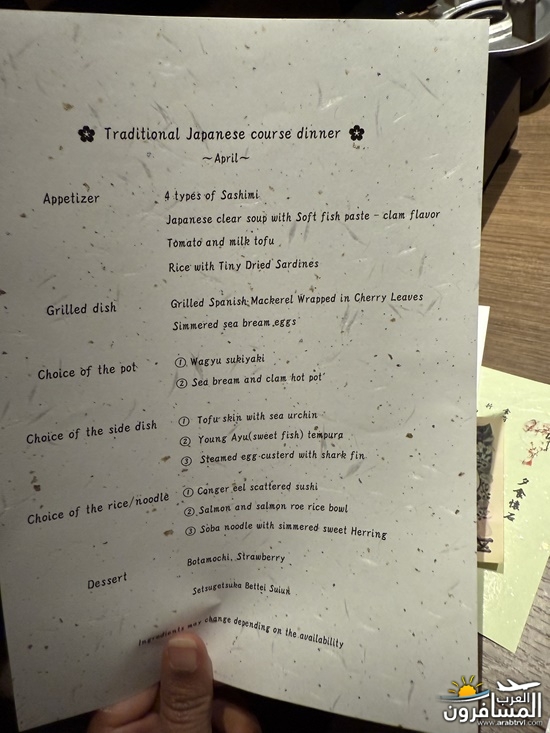 Traditional Japanese course dinner
~April~
Appetizer
4 types of Sashimi
Japanese clear soup with Soft fish paste - clam flavor
Tomato and milk tofu
Rice with Tiny Dried Sardines
Grilled dish
Grilled Spanish Mackerel Wrapped in Cherry Leaves
Simmered sea bream eggs
Choice of the pot
① Wagyu sukiyaki
② Sea bream and clam hot pot
Choice of the side dish
① Tofu skin with sea urchin
② Young Ayu(sweet fish) tempura
③ Steamed egg custerd with shark fin
Choice of the rice/noodle
① Conger eel scattered sushi
② Salmon and salmon roe rice bowl
③ Soba noodle with simmered sweet Herring
Dessert
Botamochi, Strawberry
Setsugetsuka Bettei Suiun
Ingredients may change depending on the availability
夕食懐石
العرب المسافرون
www.arabtrvl.com